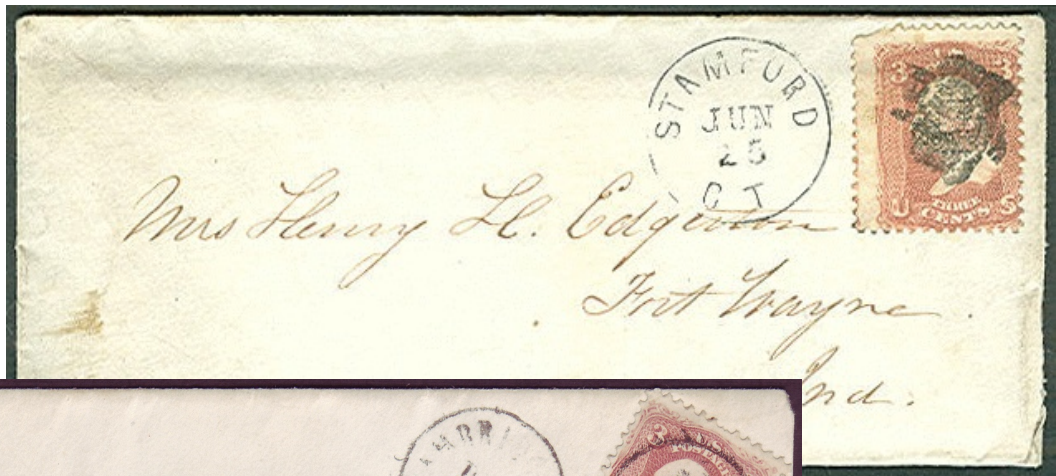 STAMFORD
JUN
25
CT
3 3
U THREE S
CENTS
Mrs Henry H. Edgerton
Fort Wayne.
Ind.
3 U.S.
POSTAGE